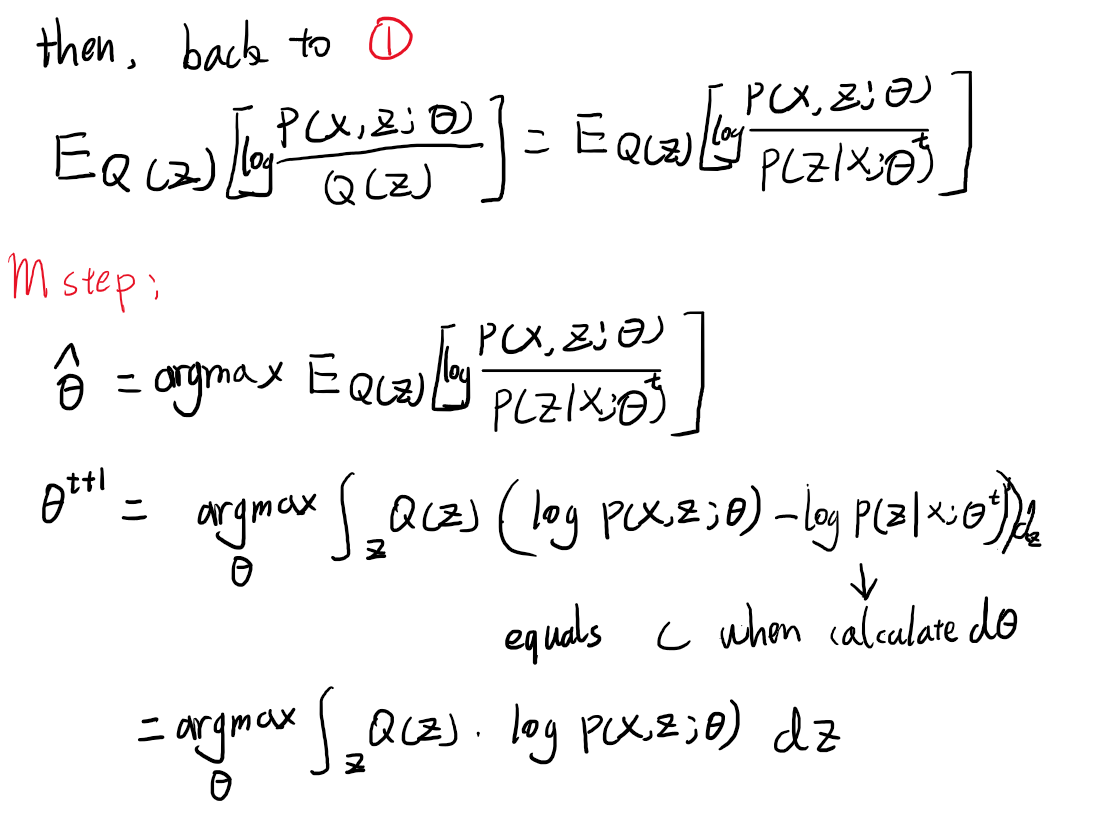 then, back to ①
E_{Q(z)} [log P(x,z;θ) / Q(z)] = E_{Q(z)} [log P(x,z;θ) / P(z|x;θ^t)]
M step;
θ̂ = argmax E_{Q(z)} [log P(x,z;θ) / P(z|x;θ^t)]
θ^{t+1} = argmax_θ ∫_z Q(z) (log P(x,z;θ) - log P(z|x;θ^t)) dz
↓
equals C when calculate dθ
= argmax_θ ∫_z Q(z) · log P(x,z;θ) dz